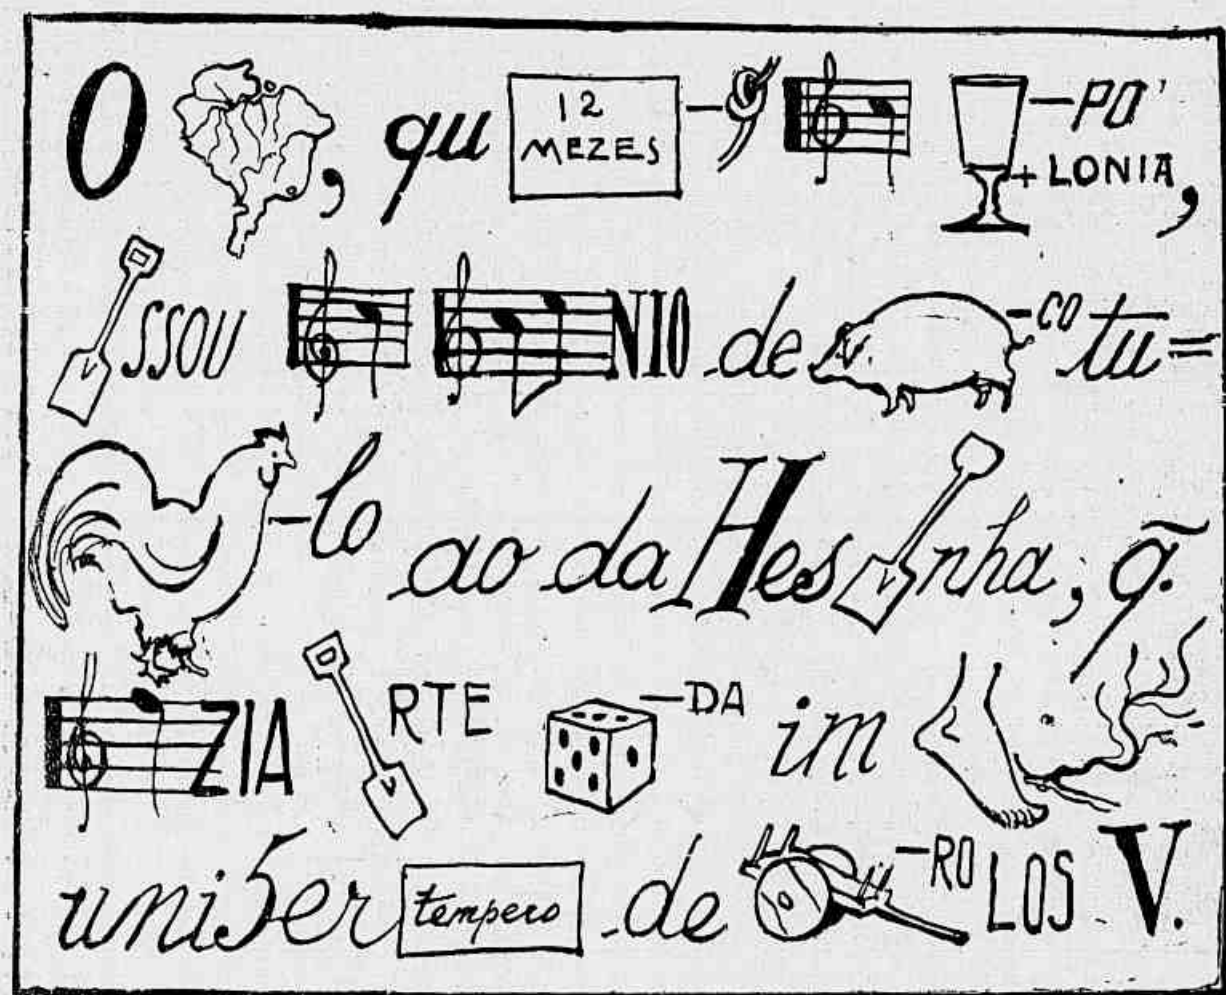 O , qu 12 MEZES - - PO' + LONIA,
SSOU NIO de -co tu=
-lo ao da Hes nha, q̃.
ZIA RTE -DA im
uni5er tempero de -RO LOS V.